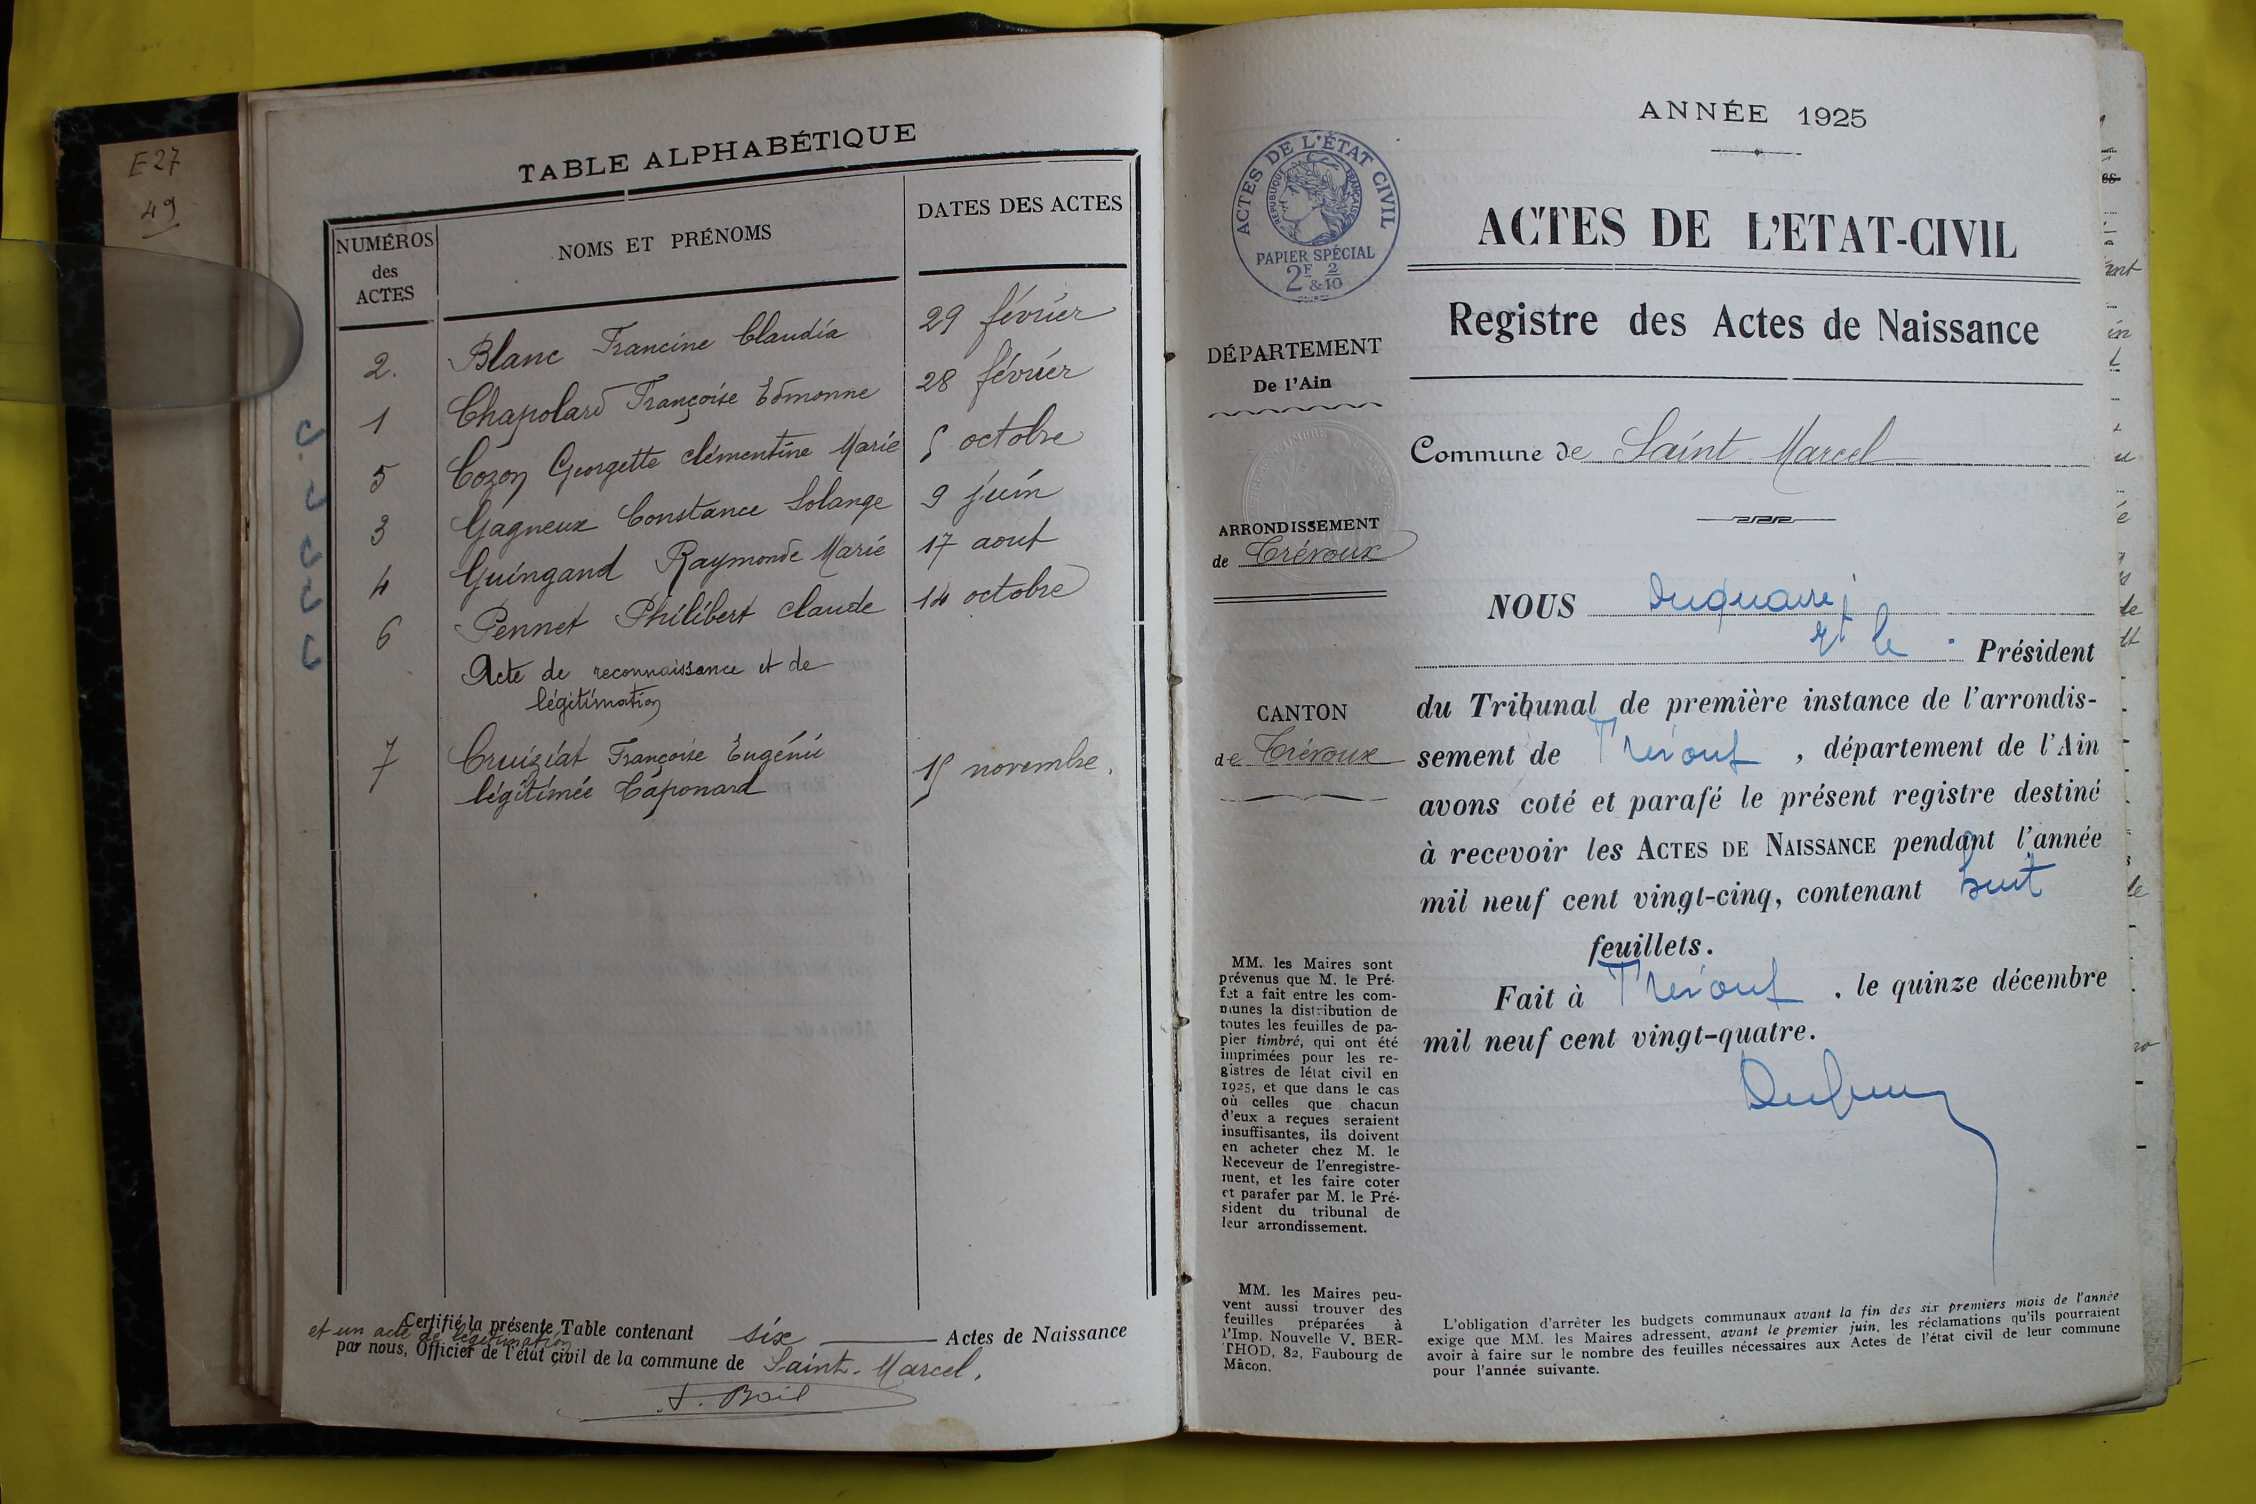 E 27
49
TABLE ALPHABÉTIQUE
NUMÉROS des ACTES
NOMS ET PRÉNOMS
DATES DES ACTES
2. Blanc Francine Claudia 29 février
1 Chapolard Françoise Edmonne 28 février
5 Cozon Georgette Clémentine Marie 5 octobre
3 Gagneux Constance Solange 9 juin
4 Guingand Raymonde Marie 17 aout
6 Pennet Philibert Claude 14 octobre
Acte de reconnaissance et de
légitimation
7 Cruiziat Françoise Eugénie
légitimée Taponard 15 novembre.
Certifié la présente Table contenant six Actes de Naissance
et un acte de légitimation
par nous, Officier de l'état civil de la commune de Saint-Marcel.
ANNÉE 1925
ACTES DE L'ÉTAT CIVIL
RÉPUBLIQUE FRANÇAISE
PAPIER SPÉCIAL
2F & 2/10
ACTES DE L'ETAT-CIVIL
Registre des Actes de Naissance
DÉPARTEMENT
De l'Ain
Commune de Saint Marcel
ARRONDISSEMENT
de Trévoux
CANTON
de Trévoux
NOUS Duquaire
Président
du Tribunal de première instance de l'arrondis-
sement de Trévoux, département de l'Ain
avons coté et parafé le présent registre destiné
à recevoir les ACTES DE NAISSANCE pendant l'année
mil neuf cent vingt-cinq, contenant huit
feuillets.
Fait à Trévoux, le quinze décembre
mil neuf cent vingt-quatre.
MM. les Maires sont
prévenus que M. le Pré-
fet a fait entre les com-
munes la distribution de
toutes les feuilles de pa-
pier timbré, qui ont été
imprimées pour les re-
gistres de létat civil en
1925, et que dans le cas
où celles que chacun
d'eux a reçues seraient
insuffisantes, ils doivent
en acheter chez M. le
Receveur de l'enregistre-
ment, et les faire coter
et parafer par M. le Pré-
sident du tribunal de
leur arrondissement.
MM. les Maires peu-
vent aussi trouver des
feuilles préparées à
l'Imp. Nouvelle V. BER-
THOD, 82, Faubourg de
Mâcon.
L'obligation d'arrêter les budgets communaux avant la fin des six premiers mois de l'année
exige que MM. les Maires adressent, avant le premier juin, les réclamations qu'ils pourraient
avoir à faire sur le nombre des feuilles nécessaires aux Actes de l'état civil de leur commune
pour l'année suivante.